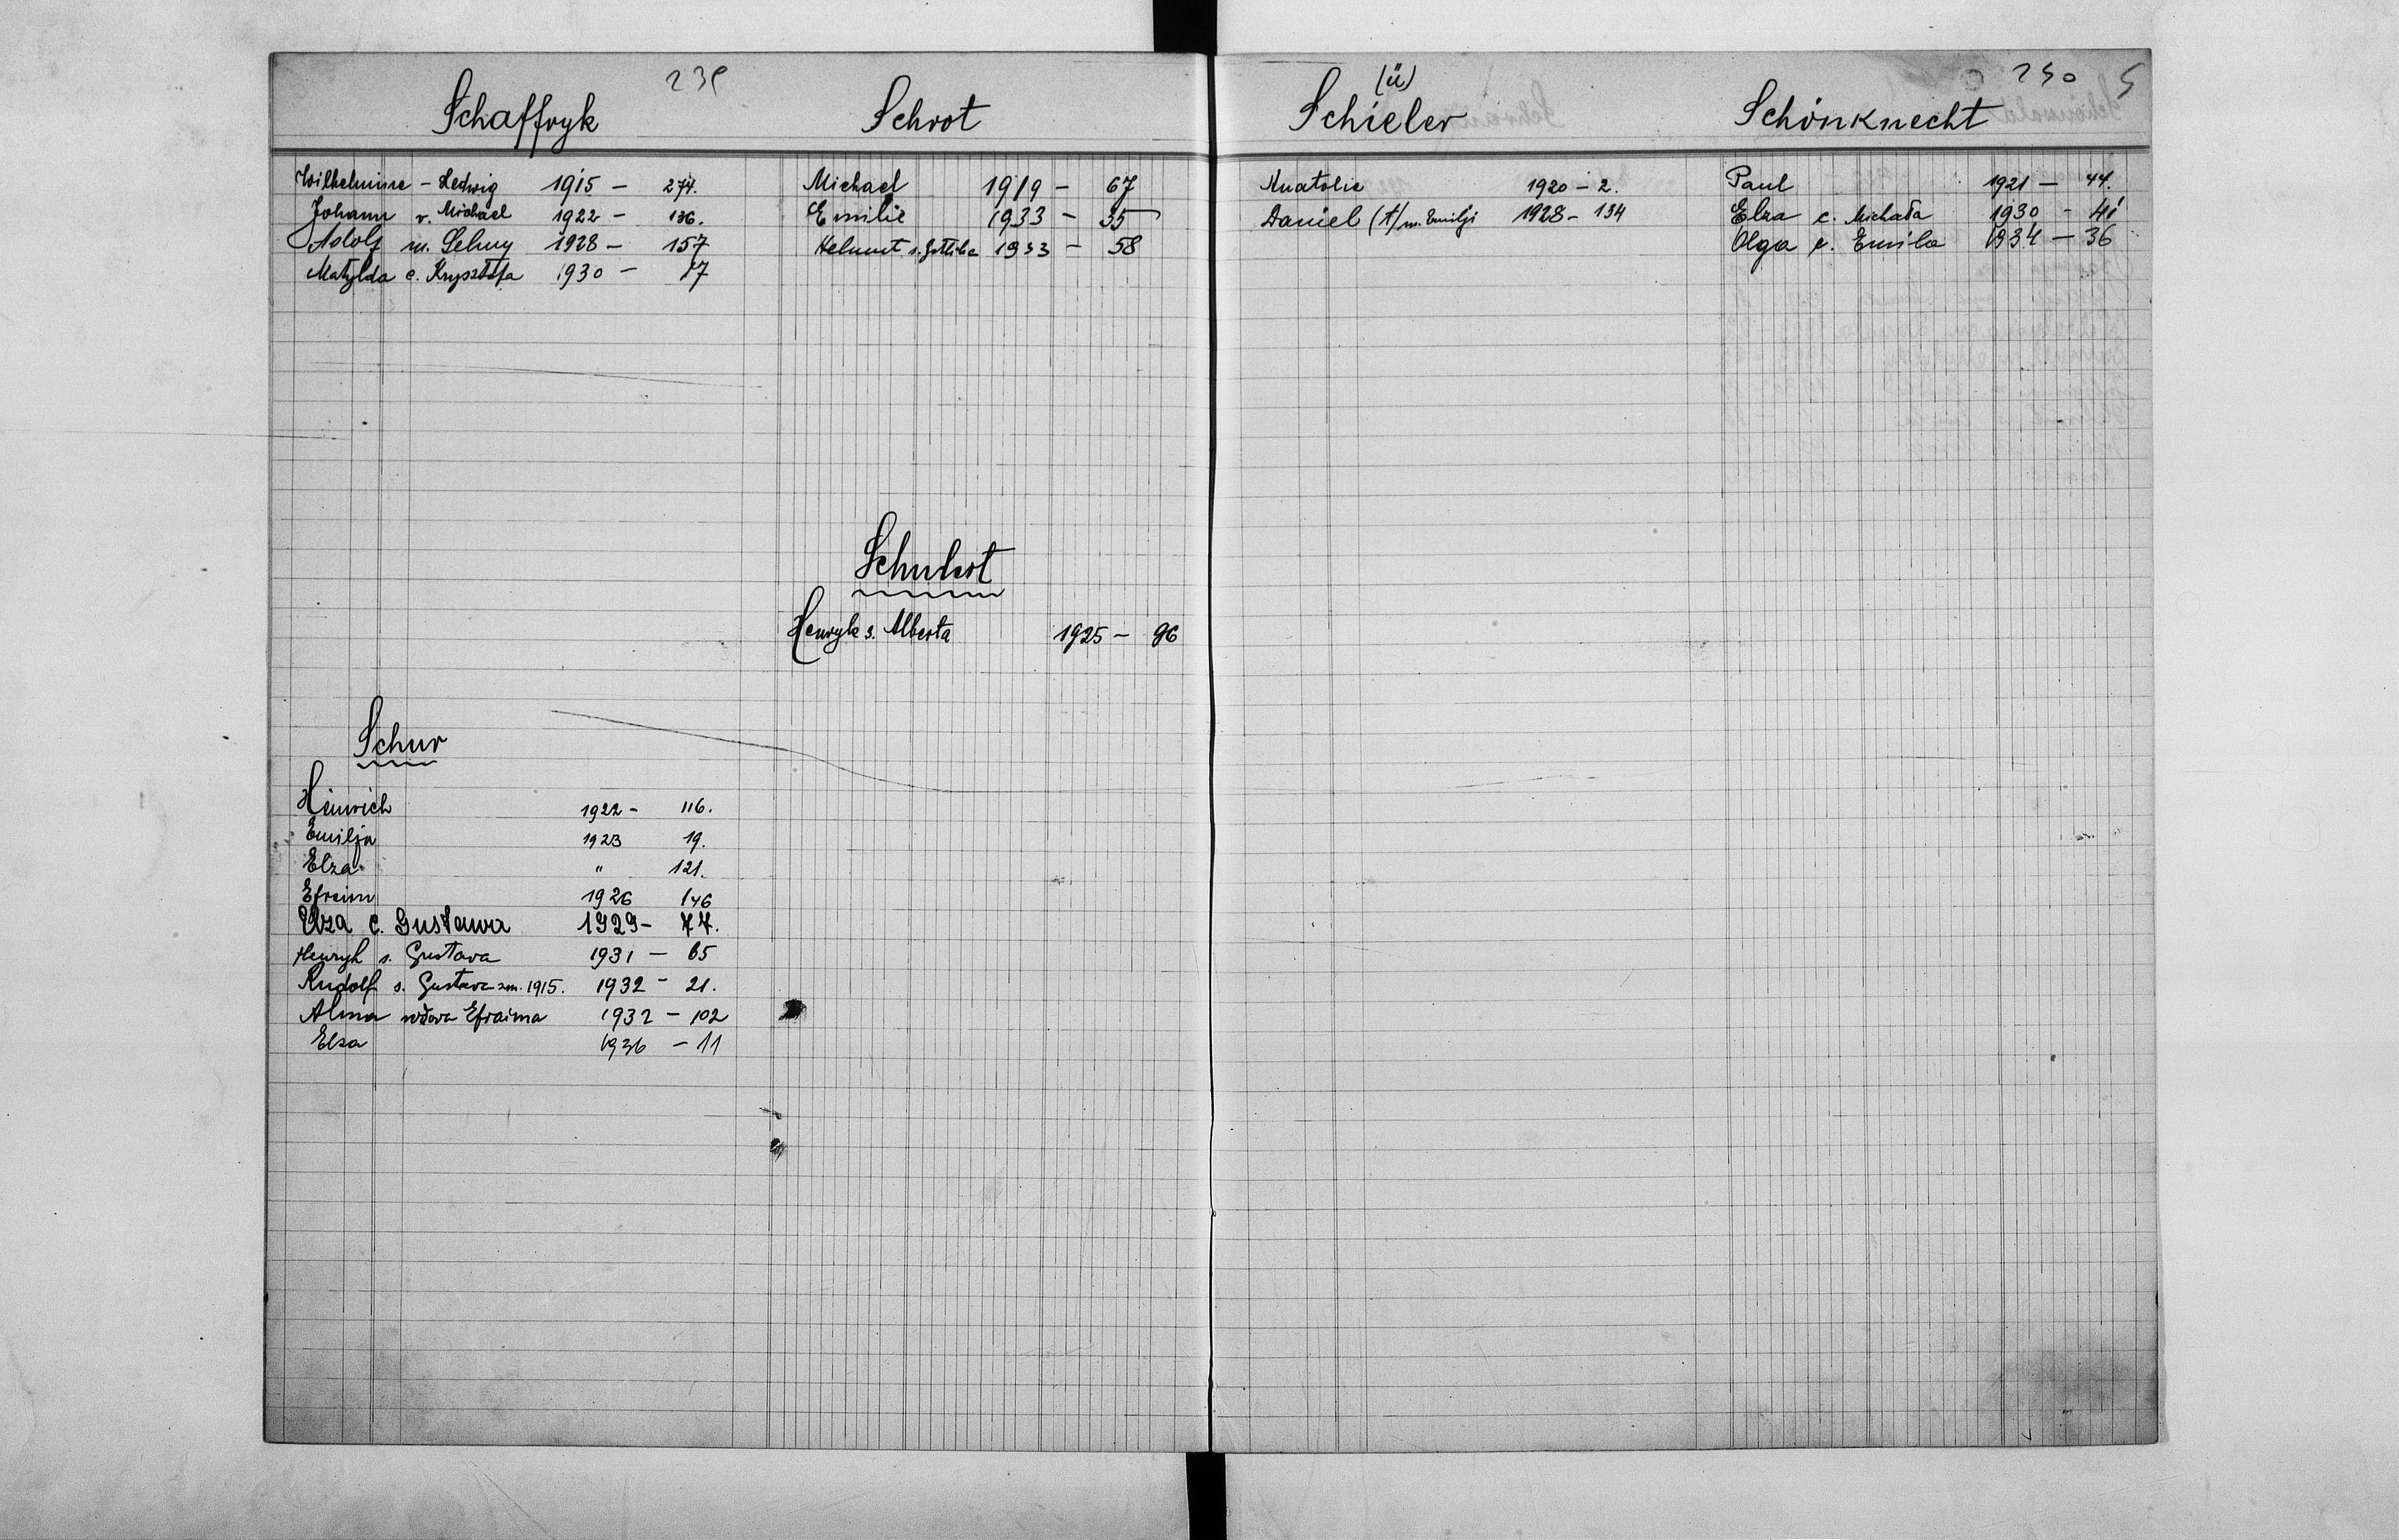 239
Schaffryk
Wilhelmine - Hedwig 1915 - 274.
Johann v. Michael 1922 - 136.
Adolf m. Selmy 1928 - 157
Matylda c. Krysztofa 1930 - 17
Schur
Heinrich 1922 - 116.
Emilja 1923 19.
Elza " 121.
Efraim 1926 146
Elza c. Gustawa 1929 - 77.
Henryk s. Gustava 1931 - 65
Rudolf s. Gustava zm. 1915. 1932 - 21.
Alma wdova Efraima 1932 - 102
Elsa 1936 - 11
Schrot
Michael 1919 - 67
Emilie 1933 - 35
Helmut s. Gotliba 1933 - 58
Schubert
Henryk s. Alberta 1925 - 96
(ü)
Schieler
Anatolie 1920 - 2.
Daniel (A) m. Emilji 1928 - 134
240 S
Schönknecht
Paul 1921 - 44.
Elza c. Michała 1930 - 41
Olga c. Emila 1934 - 36